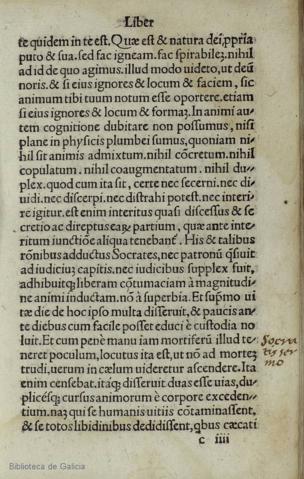 Liber
te quidem in te est. Quæ est & natura dei, ꝓpria
puto & sua. sed fac igneam. fac spirabilẽ. nihil
ad id de quo agimus. illud modo uideto, ut deũ
noris. & si eius ignores & locum & faciem, sic
animum tibi tuum notum esse oportere. etiam
si eius ignores & locum & formã. In animi au/
tem cognitione dubitare non possumus, nisi
plane in physicis plumbei sumus, quoniam ni/
hil sit animis admixtum. nihil cõcretum. nihil
copulatum. nihil coaugmentatum. nihil du/
plex. quod cum ita sit, certe nec secerni. nec di/
uidi. nec discerpi. nec distrahi potest. nec interi/
re igitur. est enim interitus quasi discessus & se
cretio ac direptus eaꝝ partium, quæ ante inte/
ritum iunctiõe aliqua tenebant̃. His & talibus
rõnibus adductus Socrates, nec patronũ q̃siuit
ad iudiciũ capitis. nec iudicibus supplex fuit,
adhibuitq; liberam cõtumaciam à magnitudi/
ne animi inductam. nõ à superbia. Et sup̃mo ui
tæ die de hoc ipso multa disseruit, & paucis an/
te diebus cum facile posset educi è custodia no
luit. Et cum penè manu iam mortiferũ illud te/
neret poculum, locutus ita est, ut nõ ad mortẽ
trudi, uerum in cælum uideretur ascendere. Ita
enim censebat. itaq; disseruit duas esse uias, du/
plicésq; cursus animorum è corpore exceden/
tium. naꝫ qui se humanis uitiis cõtaminassent,
& se totos libidinibus dedidissent, qbus cæcati
c iiii
Socra
tis ser
mo
Biblioteca de Galicia